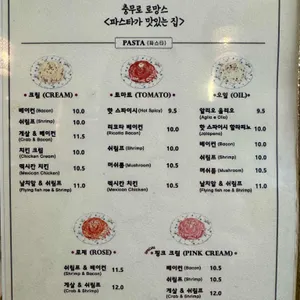 충무로 로망스
<파스타가 맛있는 집>
PASTA (파스타)
크림 (CREAM)
베이컨 (Bacon) 10.0
쉬림프 (Shrimp) 10.0
게살 & 베이컨 11.5
(Crab & Bacon)
치킨 크림 10.0
(Chicken Cream)
멕시칸 치킨 10.5
(Mexican Chicken)
날치알 & 쉬림프 11.0
(Flying fish roe & Shrimp)
토마토 (TOMATO)
핫 스파이시 (Hot Spicy) 9.5
리코타 베이컨 10.0
(Ricotta Bacon)
쉬림프 (Shrimp) 10.0
머쉬룸 (Mushroom) 10.5
멕시칸 치킨 10.5
(Mexican Chicken)
오일 (OIL)
알리오 올리오 9.5
(Aglio e Olio)
핫 스파이시 할라피뇨 10.0
(Jalapeno)
베이컨 (Bacon) 10.0
쉬림프 (Shrimp) 10.0
머쉬룸 (Mushroom) 10.5
날치알 & 쉬림프 11.0
(Flying fish roe & Shrimp)
로제 (ROSE)
쉬림프 & 베이컨 11.5
(Shrimp & Bacon)
게살 & 쉬림프 12.0
(Crab & Shrimp)
핑크 크림 (PINK CREAM)
베이컨 (Bacon) 10.5
쉬림프 (Shrimp) 10.5
게살 & 쉬림프 12.0
(Crab & Shrimp)